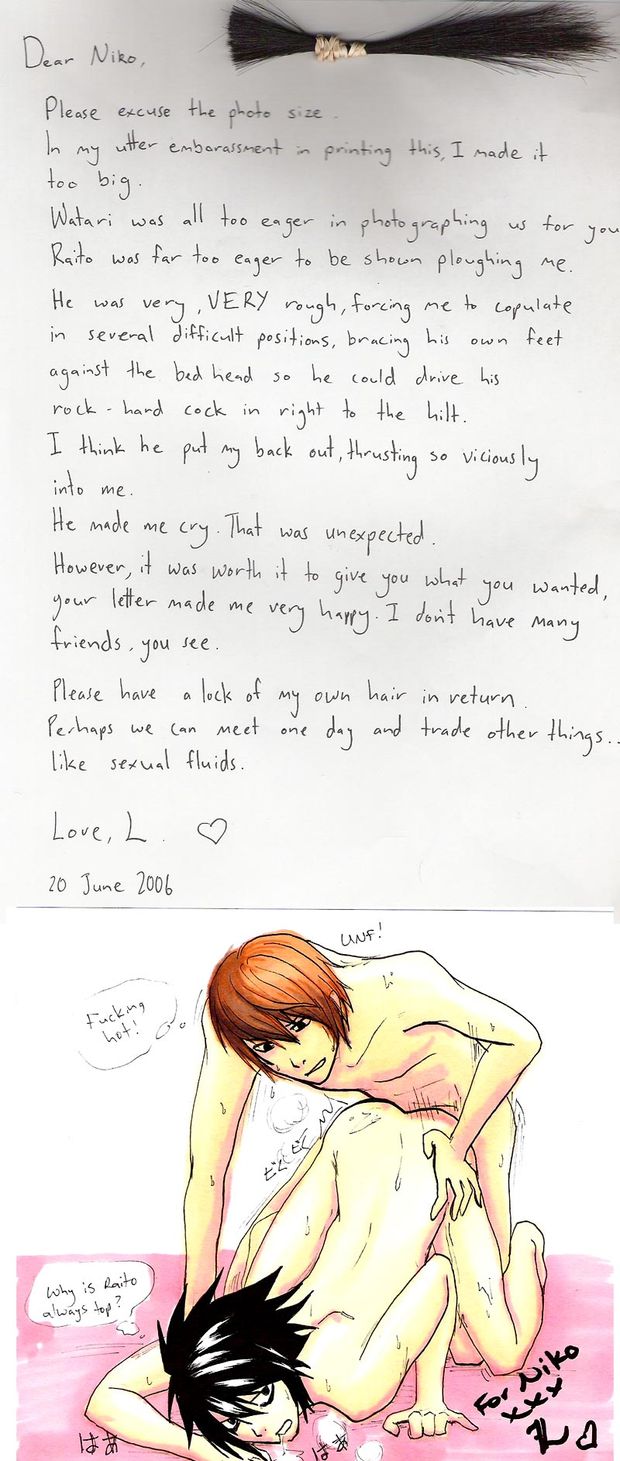 Dear Niko,
Please excuse the photo size.
In my utter embarassment in printing this, I made it
too big.
Watari was all too eager in photographing us for you
Raito was far too eager to be shown ploughing me.
He was very, VERY rough, forcing me to copulate
in several difficult positions, bracing his own feet
against the bed head so he could drive his
rock-hard cock in right to the hilt.
I think he put my back out, thrusting so viciously
into me.
He made me cry. That was unexpected.
However, it was worth it to give you what you wanted,
your letter made me very happy. I don't have many
friends, you see.
Please have a lock of my own hair in return.
Perhaps we can meet one day and trade other things..
like sexual fluids.
Love, L. ♡
20 June 2006
UNF!
Fucking
hot!
Why is Raito
always top?
はぁ
はぁ
For Niko
xxx
L ♡